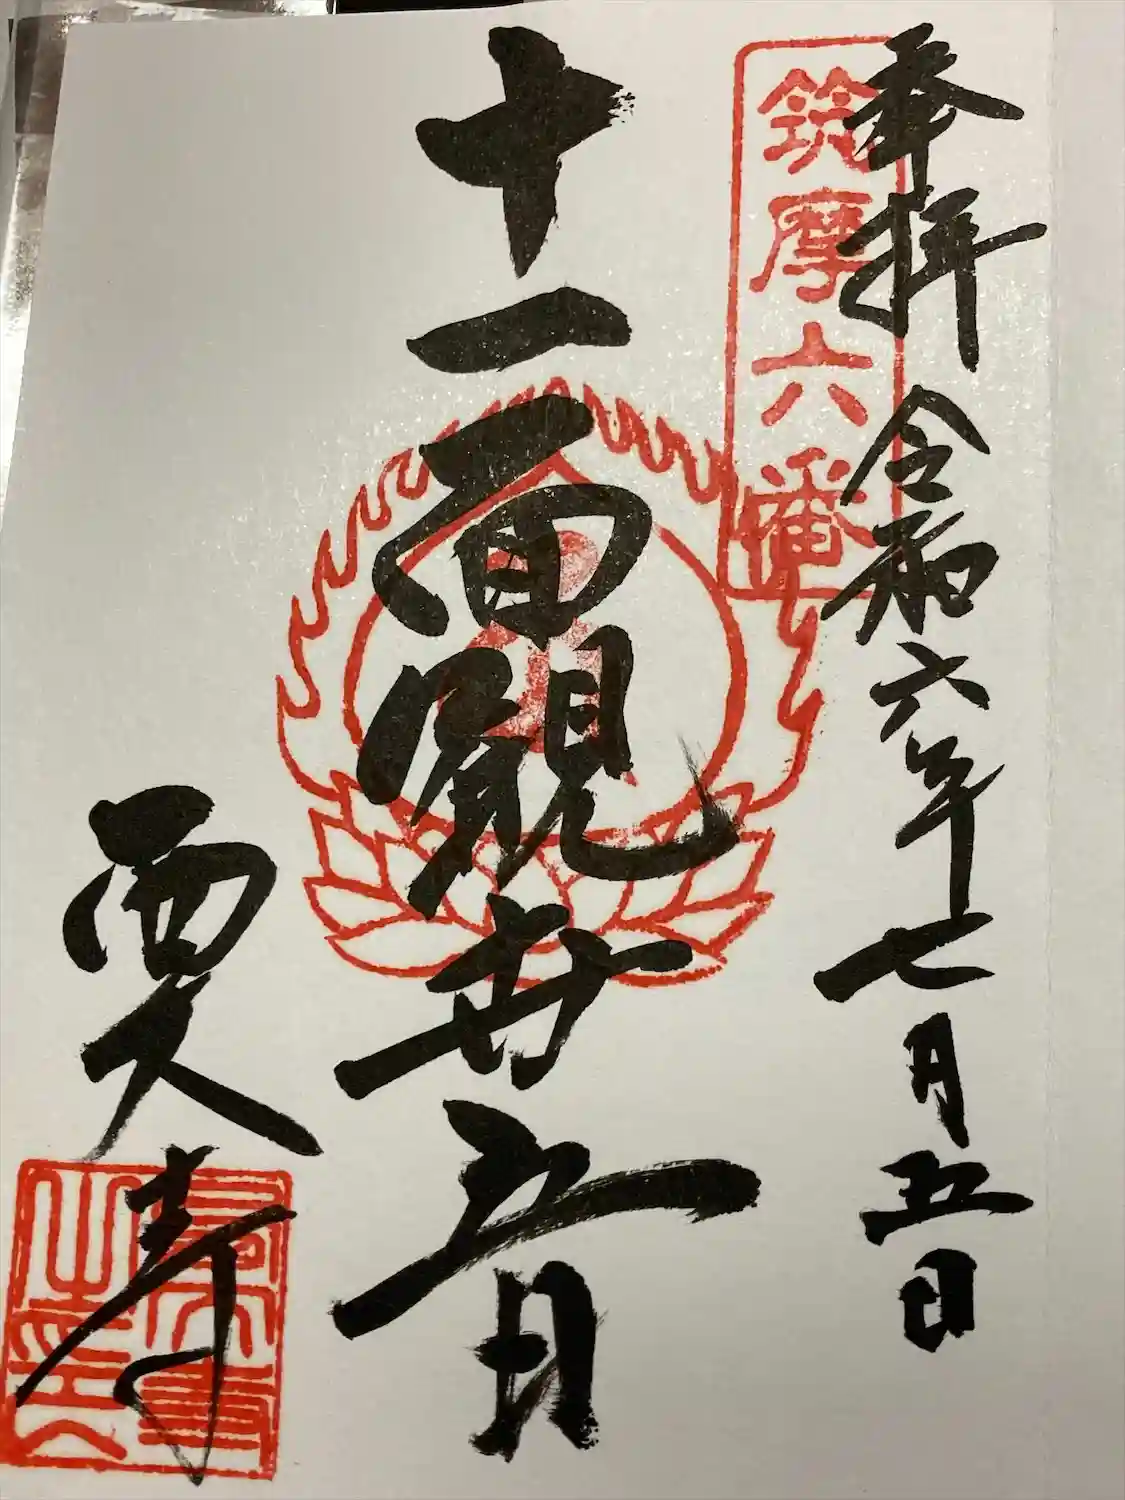 奉拝 令和六年七月五日
筑摩六番
十一面観世音
寺